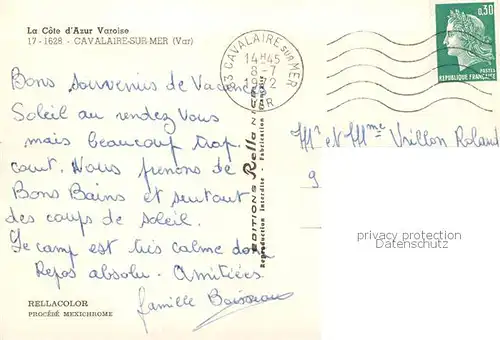 La Côte d'Azur Varoise
17-1628 - CAVALAIRE-SUR-MER (Var)
83 CAVALAIRE SUR MER
14H45
8-7
1972
VAR
0,30
POSTES
RÉPUBLIQUE FRANÇAISE
Bons souvenirs de Vacances
Soleil au rendez vous
mais beaucoup trop
court. Nous prenons de
Bons Bains et surtout
des coups de soleil.
Le camp est très calme donc
Repos absolu. Amitiées
famille
EDITIONS Rella
Reproduction Interdite - Fabrication Française
Mr et Mme Vrillon Roland
9
privatsphäre
Datenschutz
RELLACOLOR
PROCÉDÉ MEXICHROME